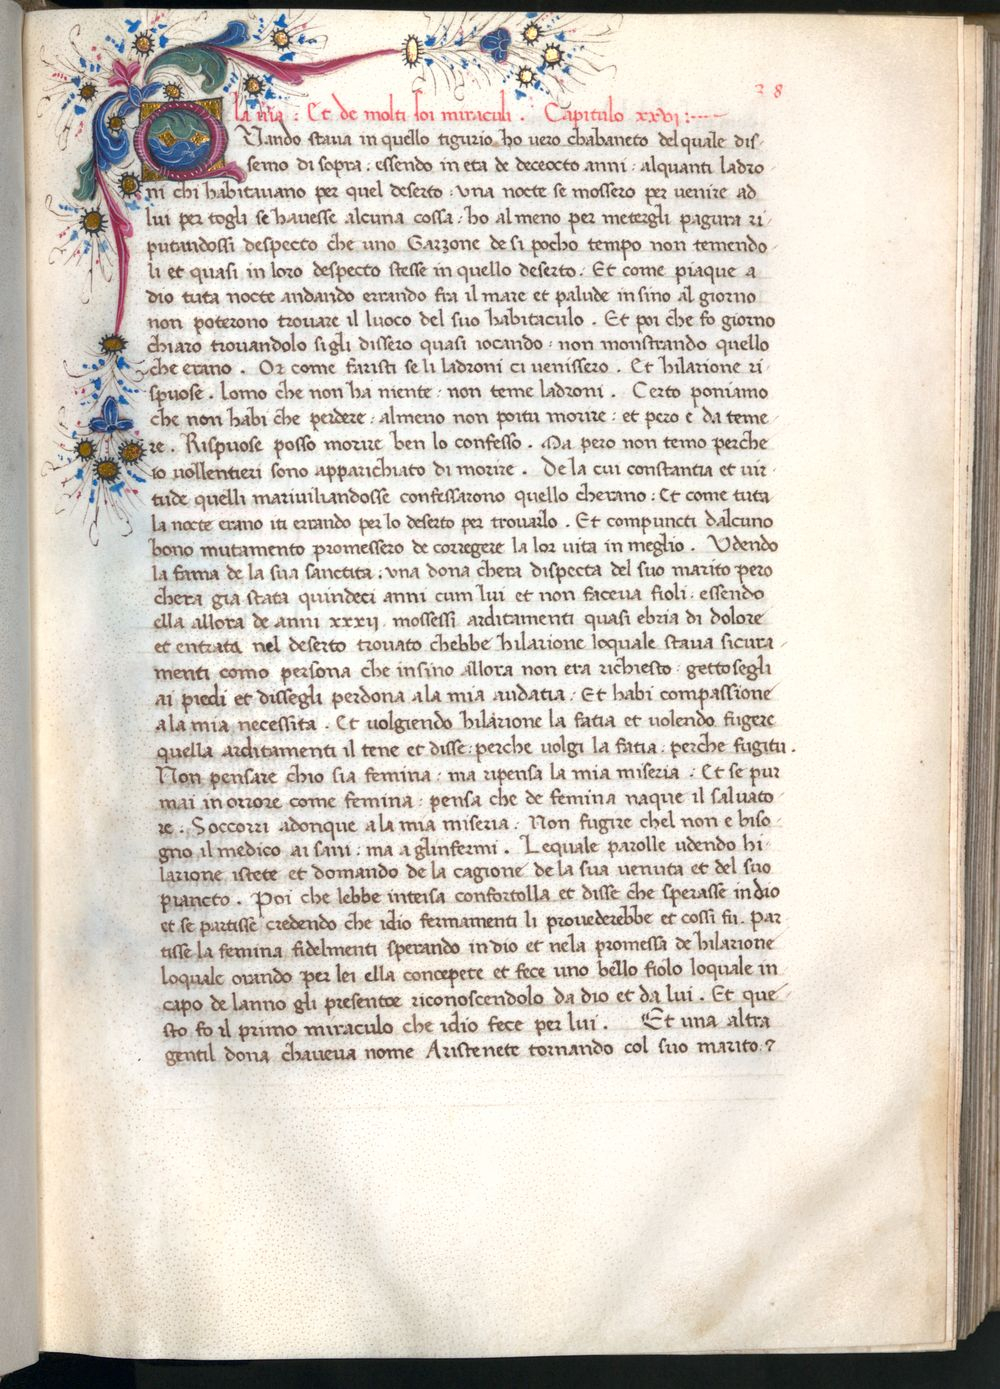 38
la uita : Et de molti soi miraculi . Capitulo xxvi :
QVando staua in quello tigurio ho uero chabaneto del quale dis
semo di sopra : essendo in eta de deceocto anni : alquanti ladro
ni chi habitauano per quel deserto : vna nocte se mossero per uenire ad
lui per togli se hauesse alcuna cossa : ho al meno per metergli pagura ri
putandossi despecto che uno Garzone de si pocho tempo non temendo
li et quasi in loro despecto stesse in quello deserto . Et come piaque a
dio tuta nocte andando errando fra il mare et palude in sino al giorno
non poterono trouare il luoco del suo habitaculo . Et poi che fo giorno
chiaro trouandolo si gli dissero quasi iocando : non monstrando quello
che erano . Or come faristi se li ladroni ci uenissero . Et hilarione ri
spuose . lomo che non ha niente : non teme ladroni . Certo poniamo
che non habi che perdere : almeno non poitu morire : et pero e da teme
re . Rispuose posso morire ben lo confesso . Ma pero non temo perche
io uollentieri sono apparichiato di morire . De la cui constantia et uir
tude quelli mariuiliandosse confessarono quello cherano : Et come tuta
la nocte erano iti errando per lo deserto per trouarlo . Et compuncti dalcuno
bono mutamento promessero de corregere la lor uita in meglio . Vdendo
la fama de la sua sanctita : vna dona chera dispecta del suo marito pero
chera gia stata quindeci anni cum lui et non faceua fioli : essendo
ella allora de anni xxxii mossessi arditamenti quasi ebria di dolore
et entrata nel deserto trouato chebbe hilarione loquale staua sicura
menti como persona che insino allora non era richiesto : gettosegli
ai piedi et dissegli perdona a la mia audatia : Et habi compassione
a la mia necessita . Et uolgiendo hilarione la fatia et uolendo fugere
quella arditamenti il tene et disse : perche uolgi la fatia : perche fugitu .
Non pensare chio sia femina : ma ripensa la mia miseria : Et se pur
mai in orrore come femina : pensa che de femina naque il saluato
re : Soccorri adonque a la mia miseria : Non fugire chel non e biso
gno il medico ai sani : ma a glinfermi . Lequale parolle udendo hi
larione istete et domando de la cagione de la sua uenuta et del suo
piancto . Poi che lebbe intesa confortolla et disse che sperasse in dio
et se partisse credendo che idio fermamenti li prouederebbe et cossi fu . Par
tisse la femina fidelmenti sperando in dio et nela promessa de hilarione
loquale orando per lei ella concepete et fece uno bello fiolo loquale in
capo de lanno gli presentoe riconoscendolo da dio et da lui . Et que
sto fo il primo miraculo che idio fece per lui . Et una altra
gentil dona chaueua nome Aristenete tornando col suo marito :